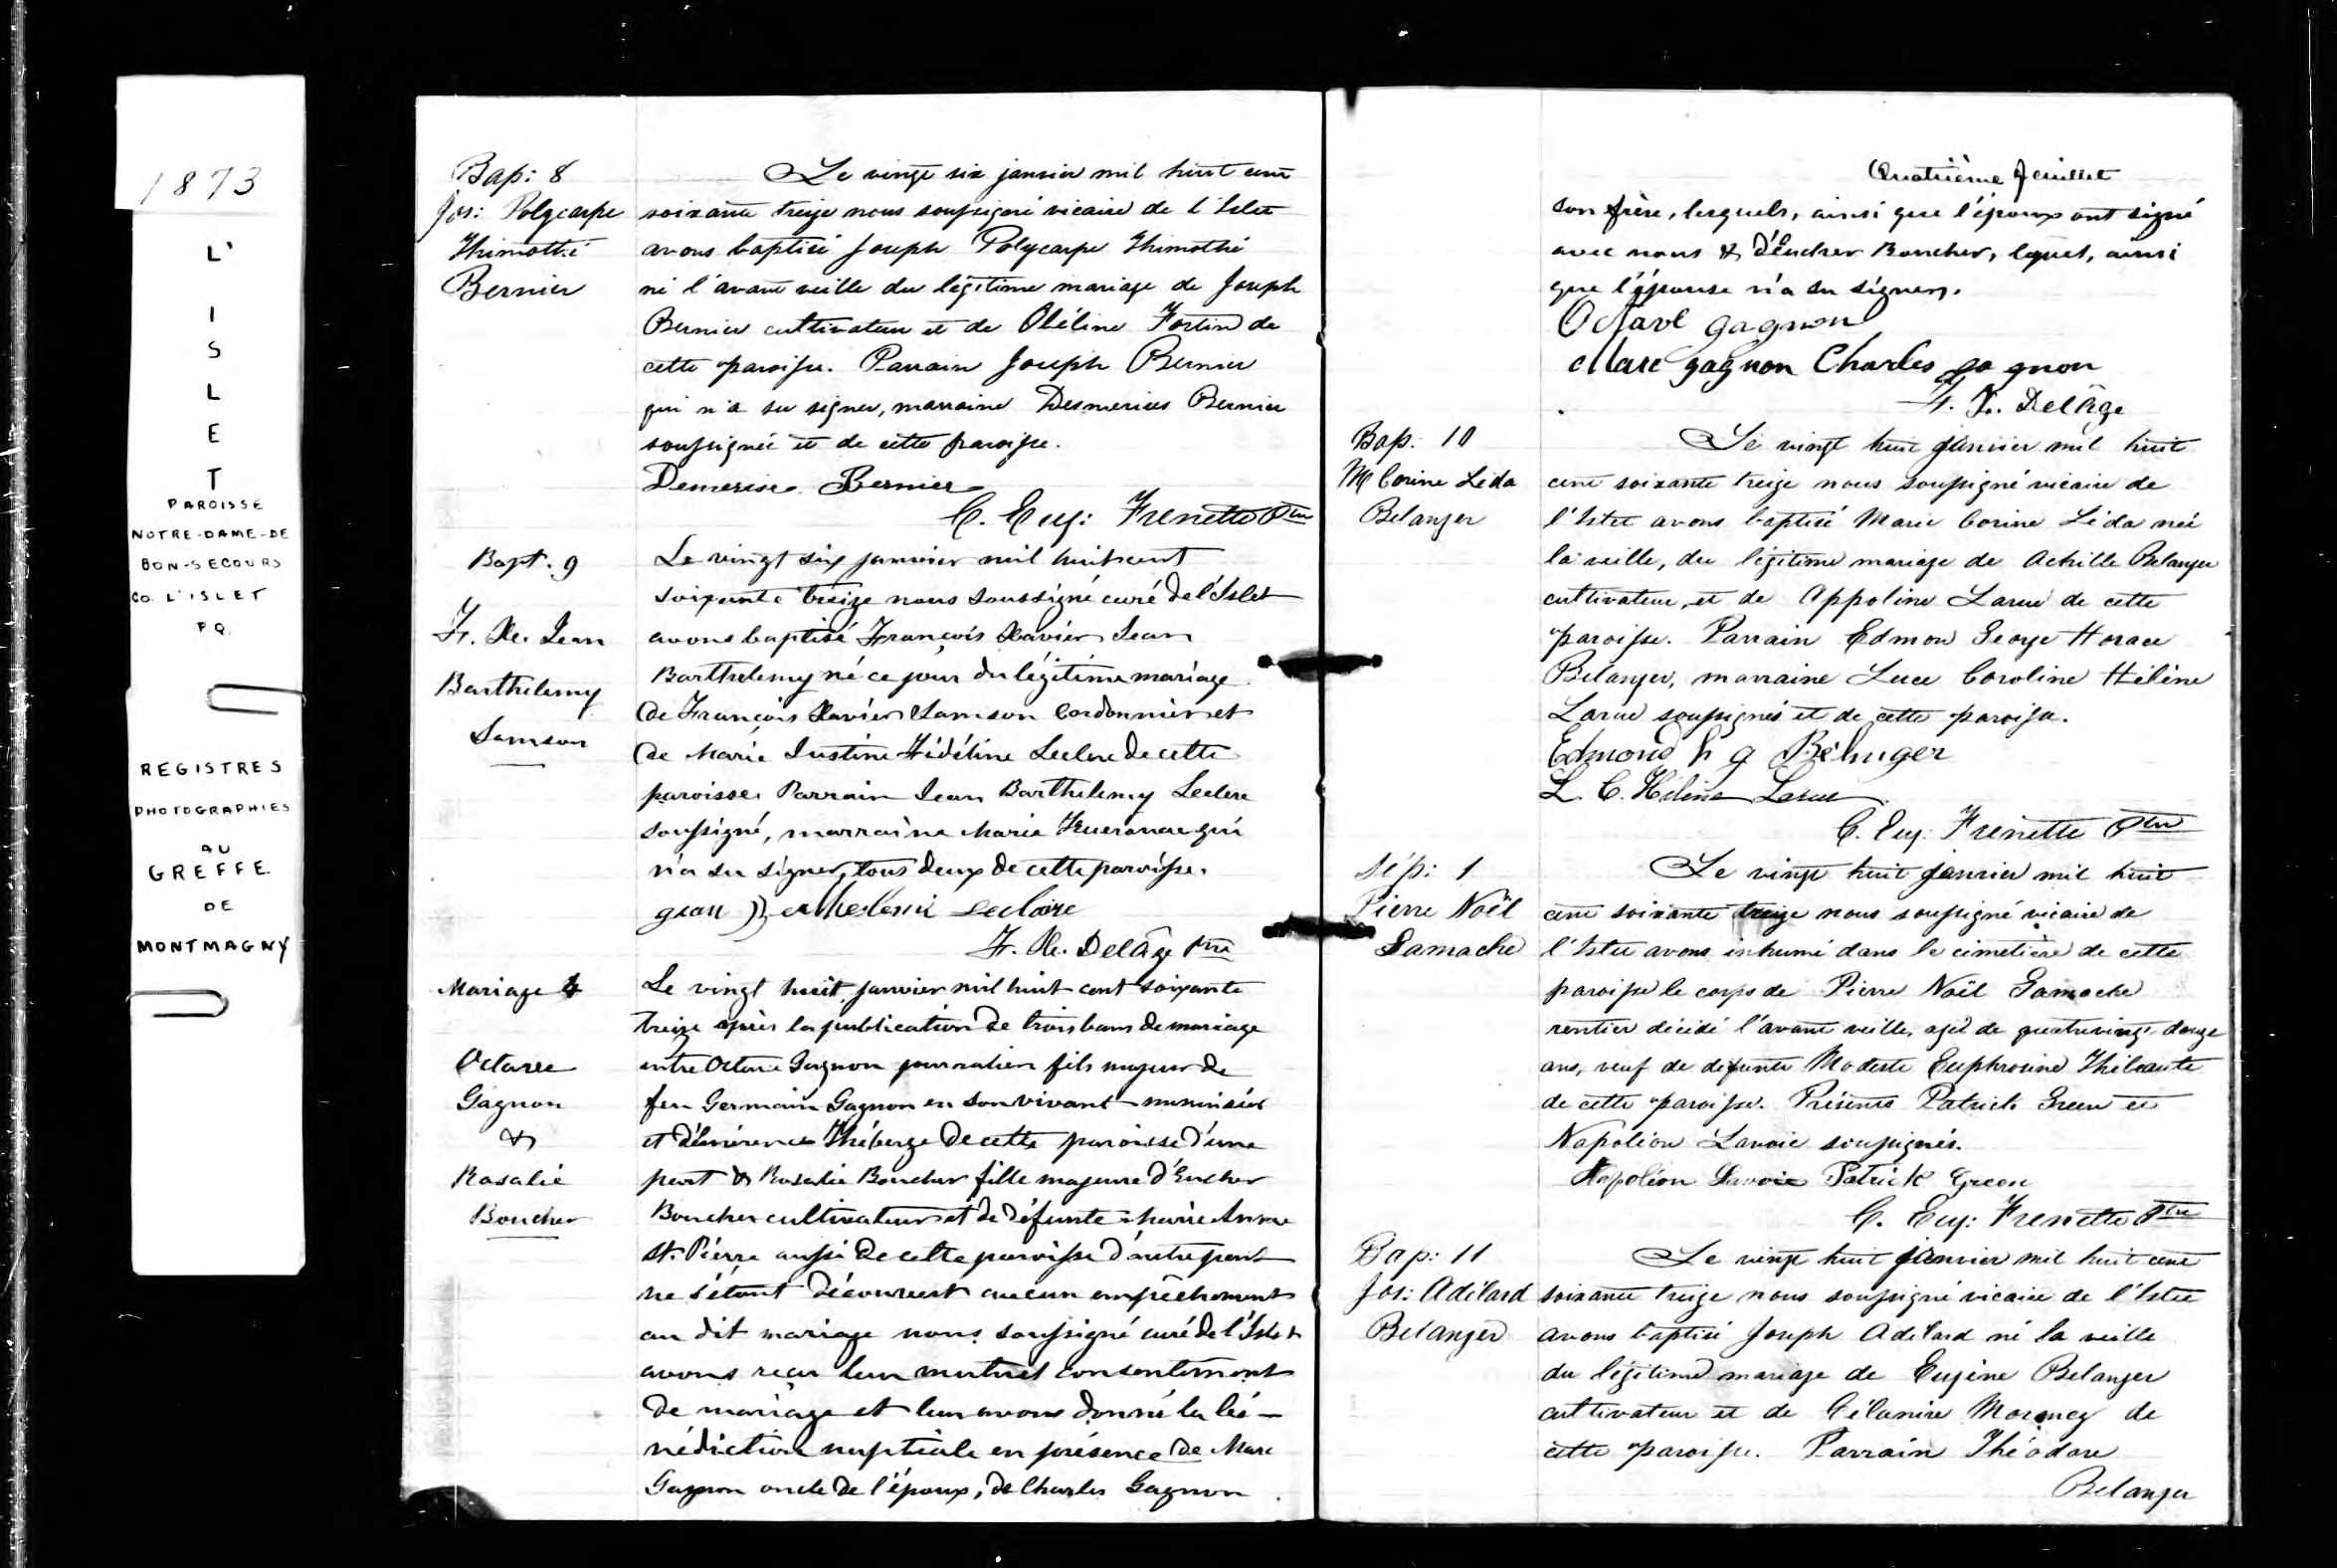 1873
L'
I
S
L
E
T
PAROISSE
NOTRE-DAME-DE
BON-SECOURS
CO. L'ISLET
P.Q.
REGISTRES
PHOTOGRAPHIES
AU
GREFFE
DE
MONTMAGNY
Bap: 8
Jos: Polycarpe
Thimothé
Bernier
Le vingt six janvier mil huit cent
soixante treize nous soussigné vicaire de l'Islet
avons baptisé Joseph Polycarpe Thimothé
né l'avant veille du légitime mariage de Joseph
Bernier cultivateur et de Obéline Fortin de
cette paroisse. Parrain Joseph Bernier
qui n'a su signer, marraine Desmerises Bernier
soussignée et de cette paroisse.
Demerise Bernier
C. Eug: Frenette Ptre
Bapt. 9
Fr. Xe. Jean
Barthelemy
Samson
Le vingt six janvier mil huit cent
soixante treize nous soussigné curé de l'Islet
avons baptisé François Xavier Jean
Barthelemy né ce jour du légitime mariage
de François Xavier Samson cordonnier et
de Marie Justine Fidéline Leclerc de cette
paroisse. Parrain Jean Barthelemy Leclerc
soussigné, marraine Marie qui
n'a su signer, tous deux de cette paroisse.
gean Leclaire
F. Xe. Delâge Ptre
Mariage
Octave
Gagnon
&
Rosalie
Boucher
Le vingt huit janvier mil huit cent soixante
treize après la publication de trois bans de mariage
entre Octave Gagnon journalier fils majeur de
feu Germain Gagnon en son vivant menuisier
et d'Emérence Théberge de cette paroisse d'une
part & Rosalie Boucher fille majeure d'Eucher
Boucher cultivateur et de défunte Marie Anne
St. Pierre aussi de cette paroisse d'autre part
ne s'étant découvert aucun empêchement
au dit mariage nous soussigné curé de l'Islet
avons reçu leur mutuel consentement
de mariage et leur avons donné la bé-
nédiction nuptiale en présence de Marc
Gagnon oncle de l'époux, de Charles Gagnon
Quatrième feuillet
son frère, lesquels, ainsi que l'époux ont signé
avec nous & d'Eucher Boucher, lequel, ainsi
que l'épouse n'a su signer.
Octave gagnon
Marc gagnon Charles gagnon
F. X. Delâge
Bap. 10
M Corine Léda
Belanger
Le vingt huit janvier mil huit
cent soixante treize nous soussigné vicaire de
l'Islet avons baptisé Marie Corine Léda née
la veille, du légitime mariage de Achille Belanger
cultivateur, et de Appoline Larue de cette
paroisse. Parrain Edmond George Horace
Belanger, marraine Luce Caroline Hélène
Larue soussignés et de cette paroisse.
Edmond h g Bélanger
L. C. Hélène Larue
C. Eug: Frenette Ptre
Sép: 1
Pierre Noël
Gamache
Le vingt huit janvier mil huit
cent soixante treize nous soussigné vicaire de
l'Islet avons inhumé dans le cimetière de cette
paroisse le corps de Pierre Noël Gamache
rentier décédé l'avant veille, agé de quatrevingt douze
ans, veuf de défunte Modeste Euphrosine Thibeault
de cette paroisse. Présents Patrick Green et
Napoléon Lavoie soussignés.
Napoléon Lavoie Patrick Green
C. Eug: Frenette Ptre
Bap: 11
Jos: Adélard
Belanger
Le vingt huit janvier mil huit cent
soixante treize nous soussigné vicaire de l'Islet
avons baptisé Joseph Adélard né la veille
du légitime mariage de Eugène Belanger
cultivateur et de Célanire Morency de
cette paroisse. Parrain Théodore
Belanger